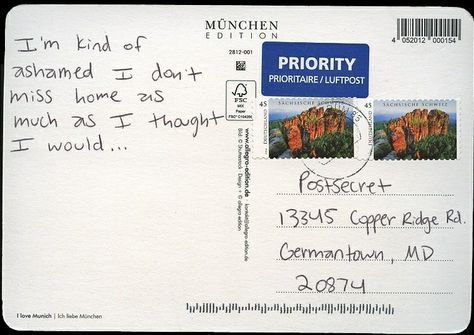 I'm kind of
ashamed I don't
miss home as
much as I thought
I would...
MÜNCHEN
EDITION
2812-001
4 052012 000154
PRIORITY
PRIORITAIRE / LUFTPOST
FSC
MIX
Paper
FSC® C104395
45 SÄCHSISCHE SCHWEIZ
DEUTSCHLAND
45 SÄCHSISCHE SCHWEIZ
DEUTSCHLAND
www.allegra-edition.de
Postsecret
13345 Copper Ridge Rd.
Germantown, MD
20874
I love Munich | Ich liebe München